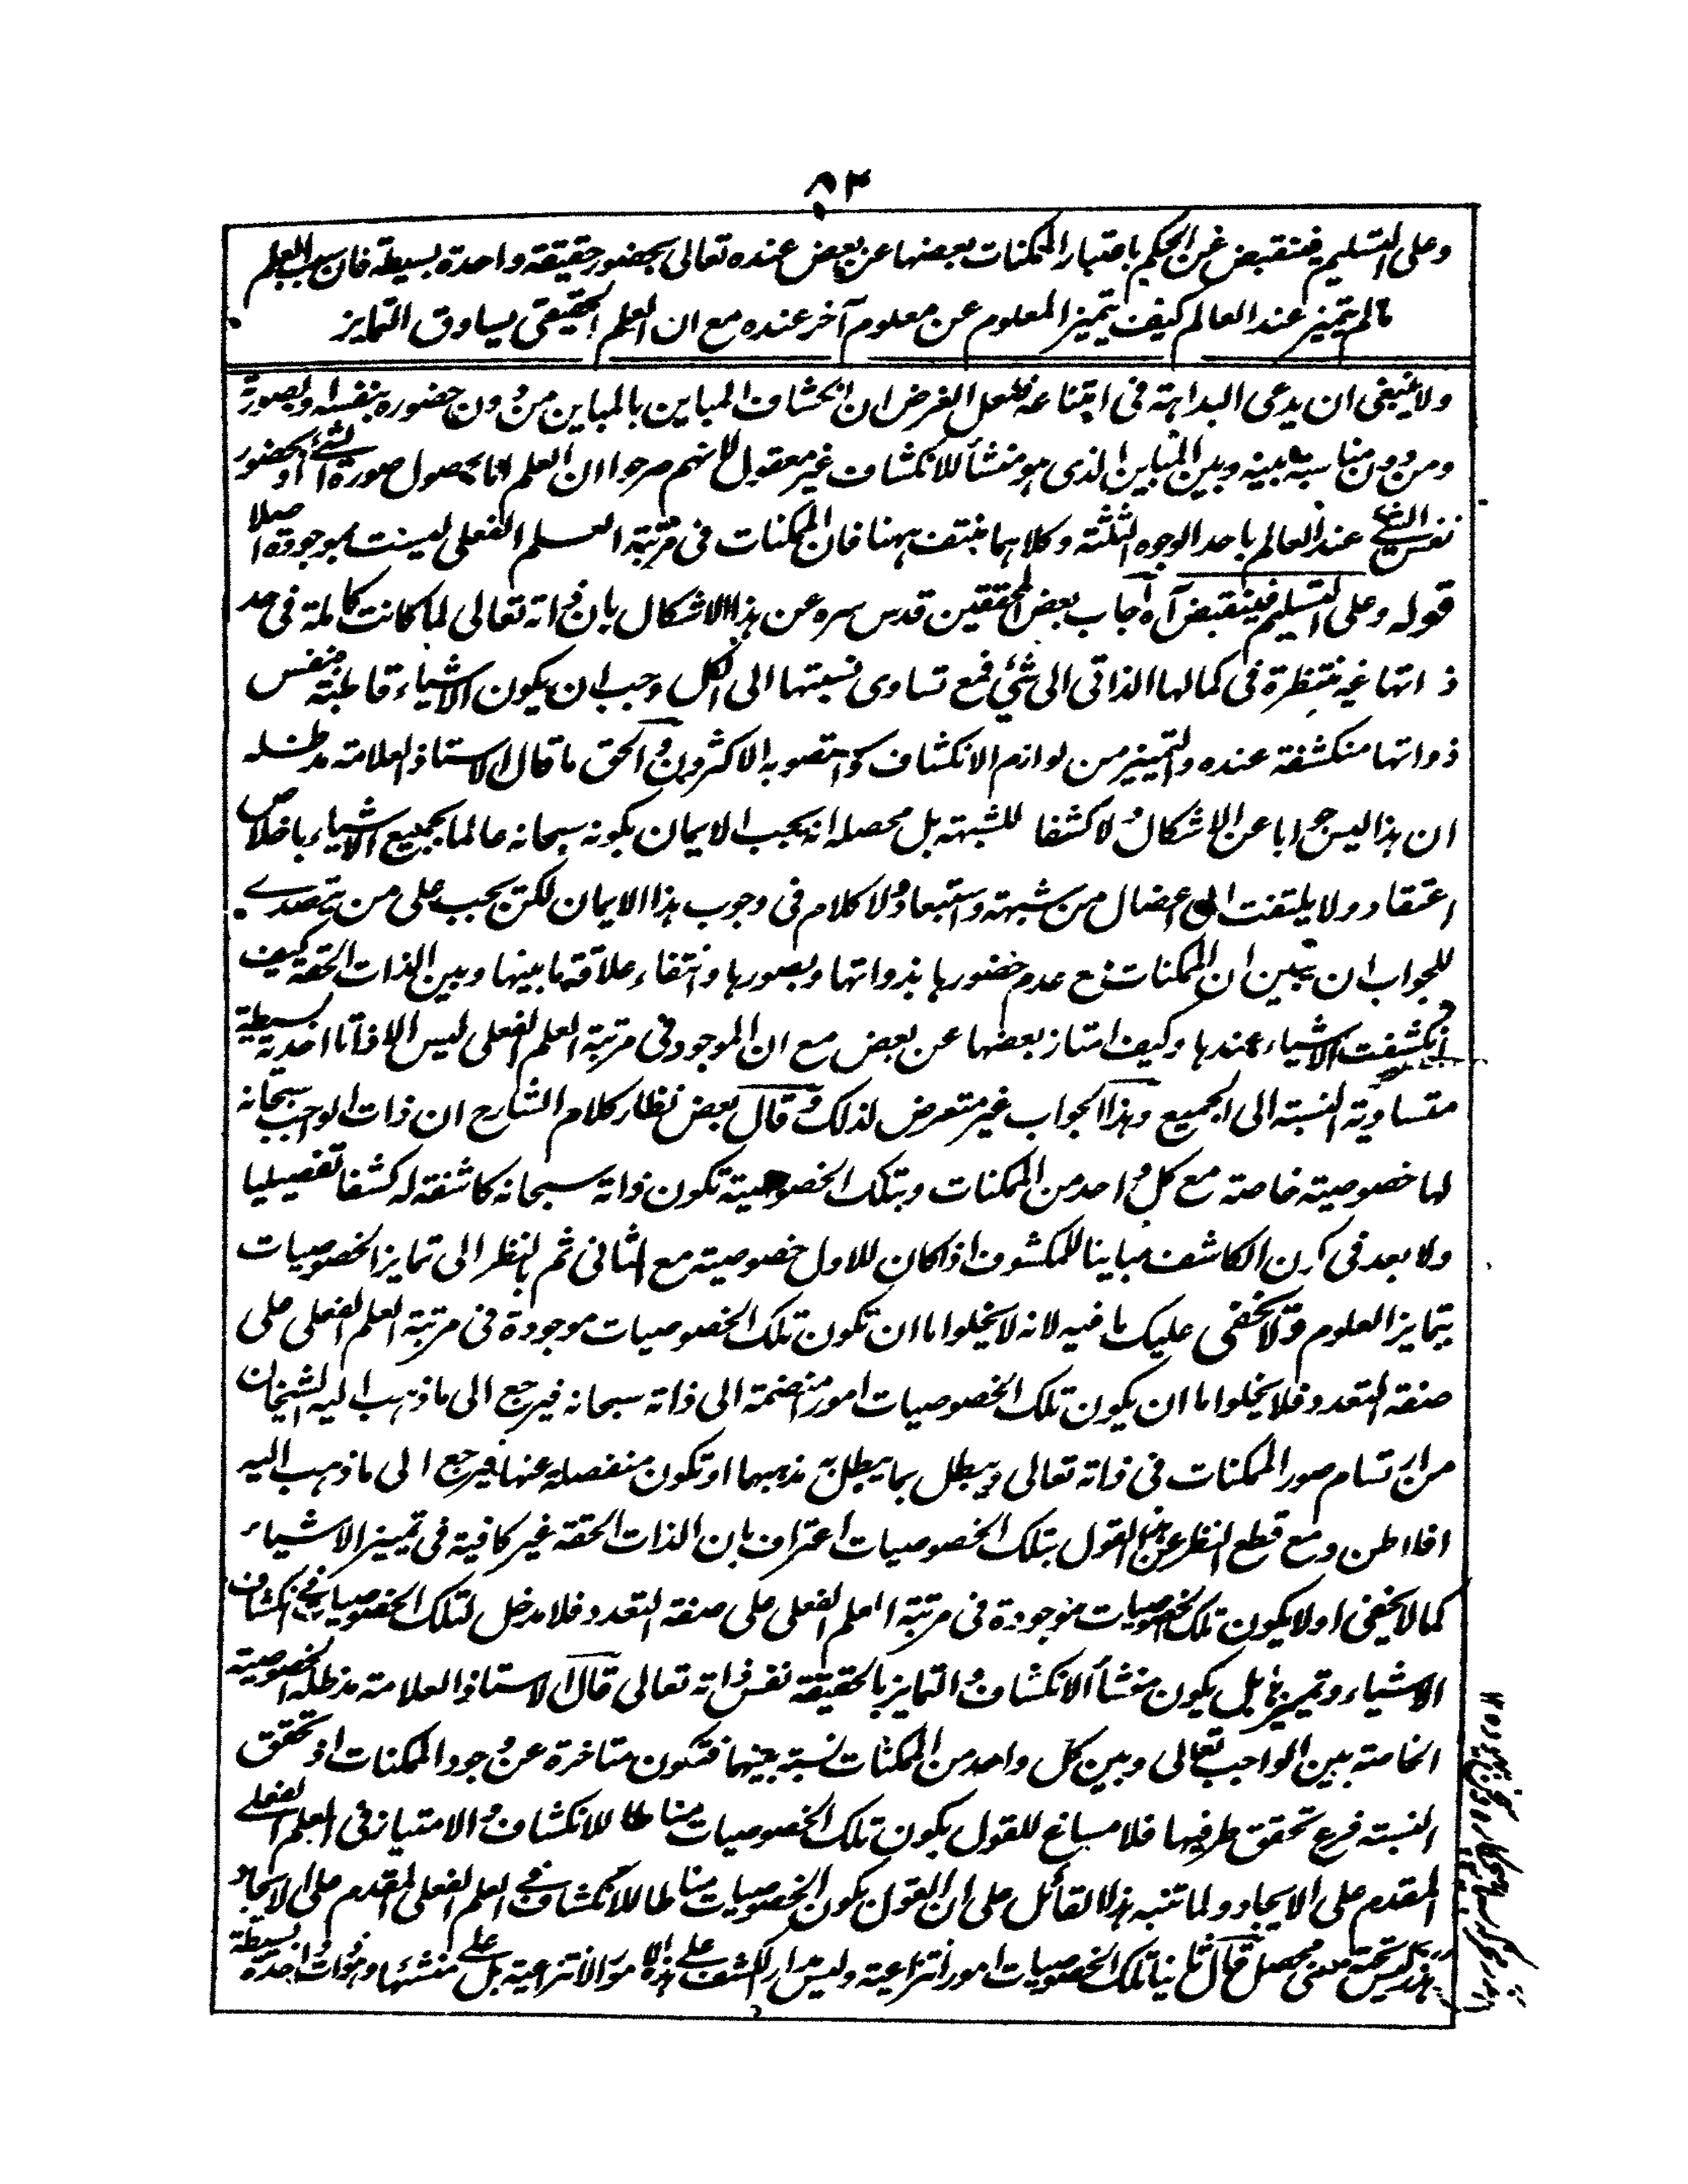 ٨٢
وعلى التسليم فينقبض عن الحكم بامتياز الممكنات بعضها عن بعض عنده تعالى بحضور حقيقة واحدة بسيطة فان سبب العلم
مالم يتميز عند العالم كيف يتميز المعلوم عن معلوم آخر عنده مع ان العلم الحقيقى يساوق التمايز
ولا ينبغى ان يدعى البداهة فى امتناعه فلعل الغرض ان انكشاف المباين بالمباين من دون حضوره بنفسه او بصورته
ومن دون مناسبة بينه وبين المباين الذى هو منشأ للانكشاف غير معقول لانهم صرحوا ان العلم انما بحصول صورة الشئ او بحضور
نفس الشئ عند العالم باحد الوجوه الثلثة وكلاهما منتف ههنا فان الممكنات فى مرتبة العلم الفعلى ليست بموجودة اصلا
قوله وعلى التسليم فينقبض آه اجاب بعض المحققين قدس سره عن هذا الاشكال بان ذاته تعالى لما كانت كاملة فى حد
ذاتها غير منتظرة فى كمالها الذاتى الى شئ فمع تساوى نسبتها الى الكل وجب ان يكون الاشياء قاطبة بنفس
ذواتها منكشفة عنده والتميز من لوازم الانكشاف واستصوبه الاكثرون والحق ما قال الاستاذ العلامة مدظله
ان هذا ليس جوابا عن الاشكال ولا كشفا للشبهة بل محصله انه يجب الايمان بكونه سبحانه عالما بجميع الاشياء باخلاص
اعتقاد ولا يلتفت الى اعضال من شبهة واستبعاد ولا كلام فى وجوب هذا الايمان لكن يجب على من تصدى
للجواب ان يبين ان الممكنات مع عدم حضورها بذواتها وبصورها وانتفاء علاقة ما بينها وبين الذات الحقة كيف
انكشفت الاشياء عندها وكيف امتاز بعضها عن بعض مع ان الموجود فى مرتبة العلم الفعلى ليس الا ذاتا احدية بسيطة
متساوية النسبة الى الجميع وهذا الجواب غير متعرض لذلك وقال بعض نظار كلام الشارح ان ذات الواجب سبحانه
لها خصوصية خاصة مع كل واحد من الممكنات وبتلك الخصوصية تكون ذاته سبحانه كاشفة له كشفا تفصيليا
ولا بعد فى كون الكاشف مباينا للمكشوف اذا كان للاول خصوصية مع الثانى ثم بالنظر الى تمايز الخصوصيات
يتمايز العلوم ولا يخفى عليك ما فيه لانه لا يخلوا ما ان تكون تلك الخصوصيات موجودة فى مرتبة العلم الفعلى على
صفة التعدد فلا يخلوا ما ان يكون تلك الخصوصيات امورا منضمة الى ذاته سبحانه فيرجع الى ما ذهب اليه الشيخان
من ارتسام صور الممكنات فى ذاته تعالى ويبطل بما يبطل به مذهبهما او تكون منفصلة عنها فيرجع الى ما ذهب اليه
افلاطن ومع قطع النظر عن هذا القول بتلك الخصوصيات اعتراف بان الذات الحقة غير كافية فى تميز الاشياء
كما لا يخفى او لا يكون تلك الخصوصيات موجودة فى مرتبة العلم الفعلى على صفة التعدد فلا مدخل لتلك الخصوصيات فى انكشاف
الاشياء وتميزها بل يكون منشأ الانكشاف والتمايز بالحقيقة نفس ذاته تعالى قال الاستاذ العلامة مدظله الخصوصية
الخاصة بين الواجب تعالى وبين كل واحد من الممكنات نسبة بينهما فتكون متاخرة عن وجود الممكنات اذ تحقق
النسبة فرع تحقق طرفيها فلا مساغ للقول بكون تلك الخصوصيات مناطا للانكشاف والامتياز فى العلم الفعلى
المقدم على الايجاد ولما تنبه هذا القائل على ان القول بكون الخصوصيات مناطا للانكشاف فى العلم الفعلى المقدم على الايجاد
هذر ليس تحته معنى محصل قال ثانيا تلك الخصوصيات امور انتزاعية وليس مدار الكشف على هذه الامور الانتزاعية بل على منشئها وهو ذات احدية بسيطة